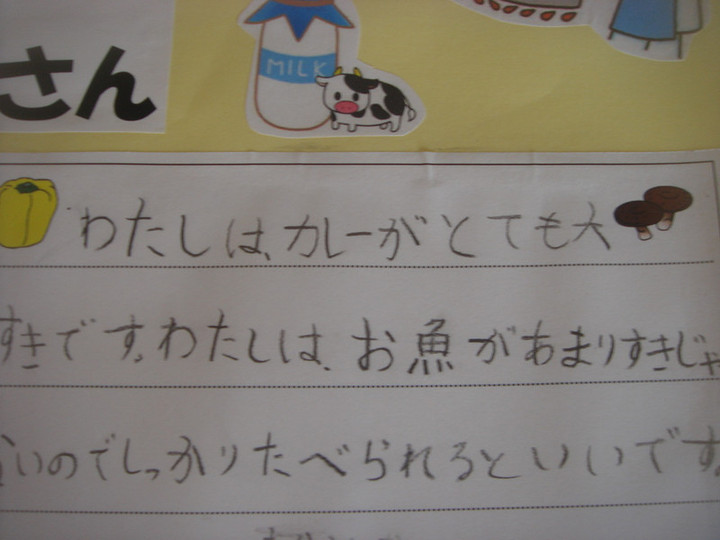 さん
MILK
わたしは、カレーがとても大
すきです。わたしは、お魚があまりすきじゃ
いのでしっかりたべられるといいです。